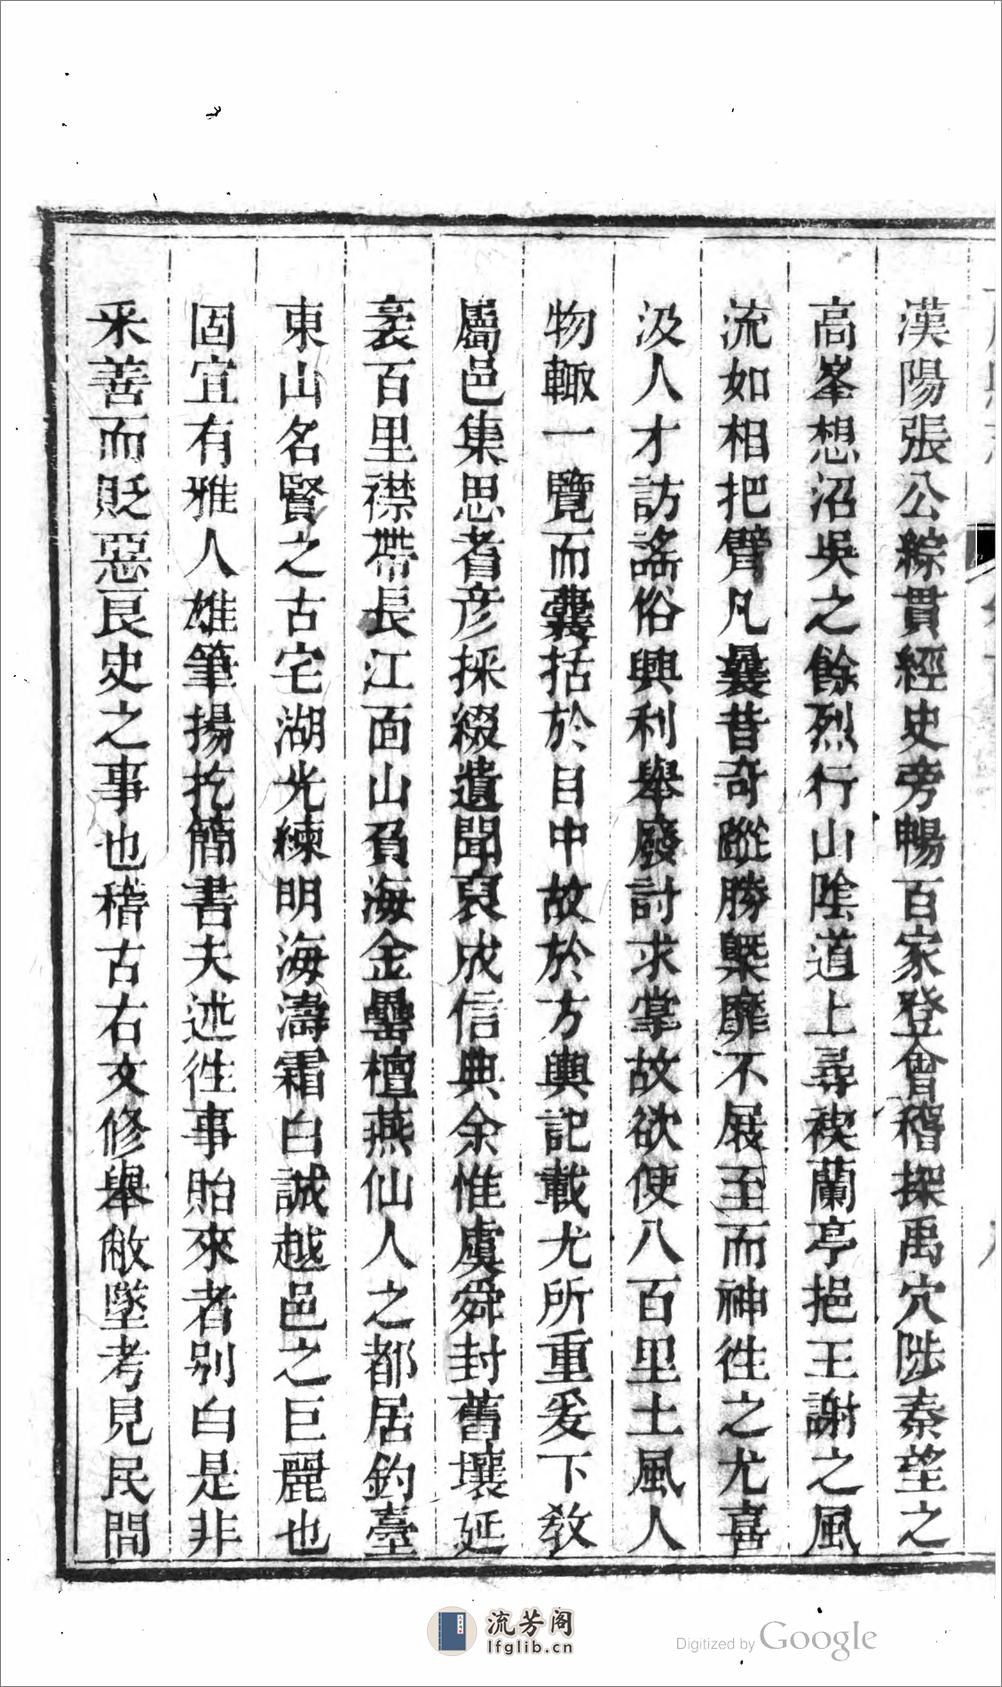 漢陽張公綜貫經史旁暢百家登會稽探禹穴陟秦望之
高峯想沼吳之餘烈行山陰道上尋禊蘭亭挹王謝之風
流如相把臂凡曩昔奇蹤勝槩靡不展至而神徃之尤喜
汲人才訪謠俗興利舉廢討求掌故欲使八百里土風人
物輙一覽而囊括於目中故於方輿記載尤所重爰下敎
屬邑集思耆彦採綴遺聞裒成信典余惟虞舜封舊壤延
袤百里襟帶長江面山負海金罍檀燕仙人之都居釣臺
東山名賢之古宅湖光練明海濤霜白誠越邑之巨麗也
固宜有雅人雄筆揚扢簡書夫述徃事貽來者别白是非
采善而貶惡良史之事也稽古右文修舉敝墜考見民間
流芳阁
lfglib.cn
Digitized by Google